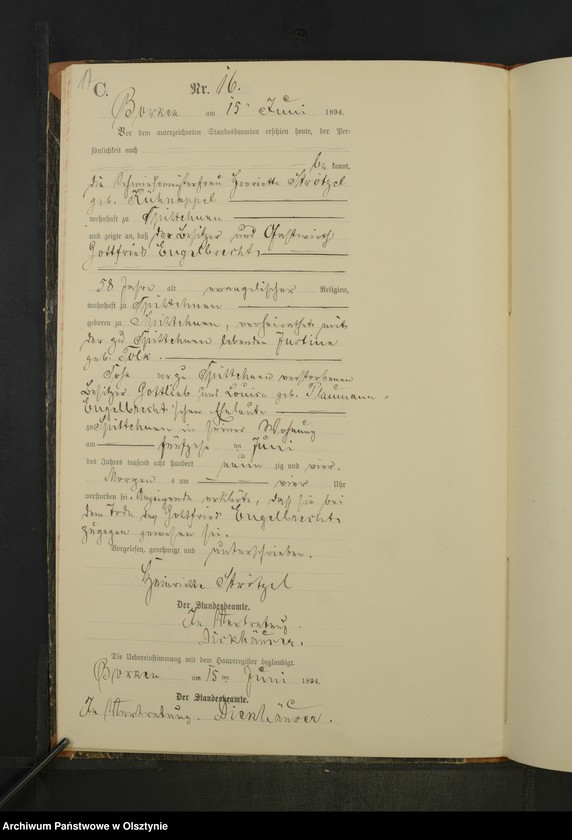 C.
Nr. 16.
Borken am 15 Juni 1894.
Vor dem unterzeichneten Standesbeamten erschien heute, der Per-
sönlichkeit nach
kannt,
die Schmiedemeisterfrau Henriette Strötzel
geb. Kuhnappel
wohnhaft zu Spittehnen
und zeigte an, daß der Besitzer und Gastwirth
Gottfried Engelbrecht,
58 Jahre alt evangelischer Religion,
wohnhaft zu Spittehnen
geboren zu Spittehnen, verheirathet mit
der zu Spittehnen lebenden Justine
geb. Tolk.
Sohn der zu Spittehnen verstorbenen
Besitzer Gottlieb und Louise geb. Plaumann,
Engelbrecht'schen Eheleute
zu Spittehnen in seiner Wohnung
am fünfzehn Juni
des Jahres tausend acht hundert neun zig und vier.
Morgens um vier Uhr
verstorben sei. Anzeigende erklärte, daß sie bei
dem Tode des Gottfried Engelbrecht
zugegen gewesen sei.
Vorgelesen, genehmigt und unterschrieben.
Heinriette Strötzel
Der Standesbeamte.
In Vertretung.
Dickhäuser.
Die Uebereinstimmung mit dem Hauptregister beglaubigt.
Borken am 15 ten Juni 1894.
Der Standesbeamte.
In Vertretung. Dickhäuser.
Archiwum Państwowe w Olsztynie